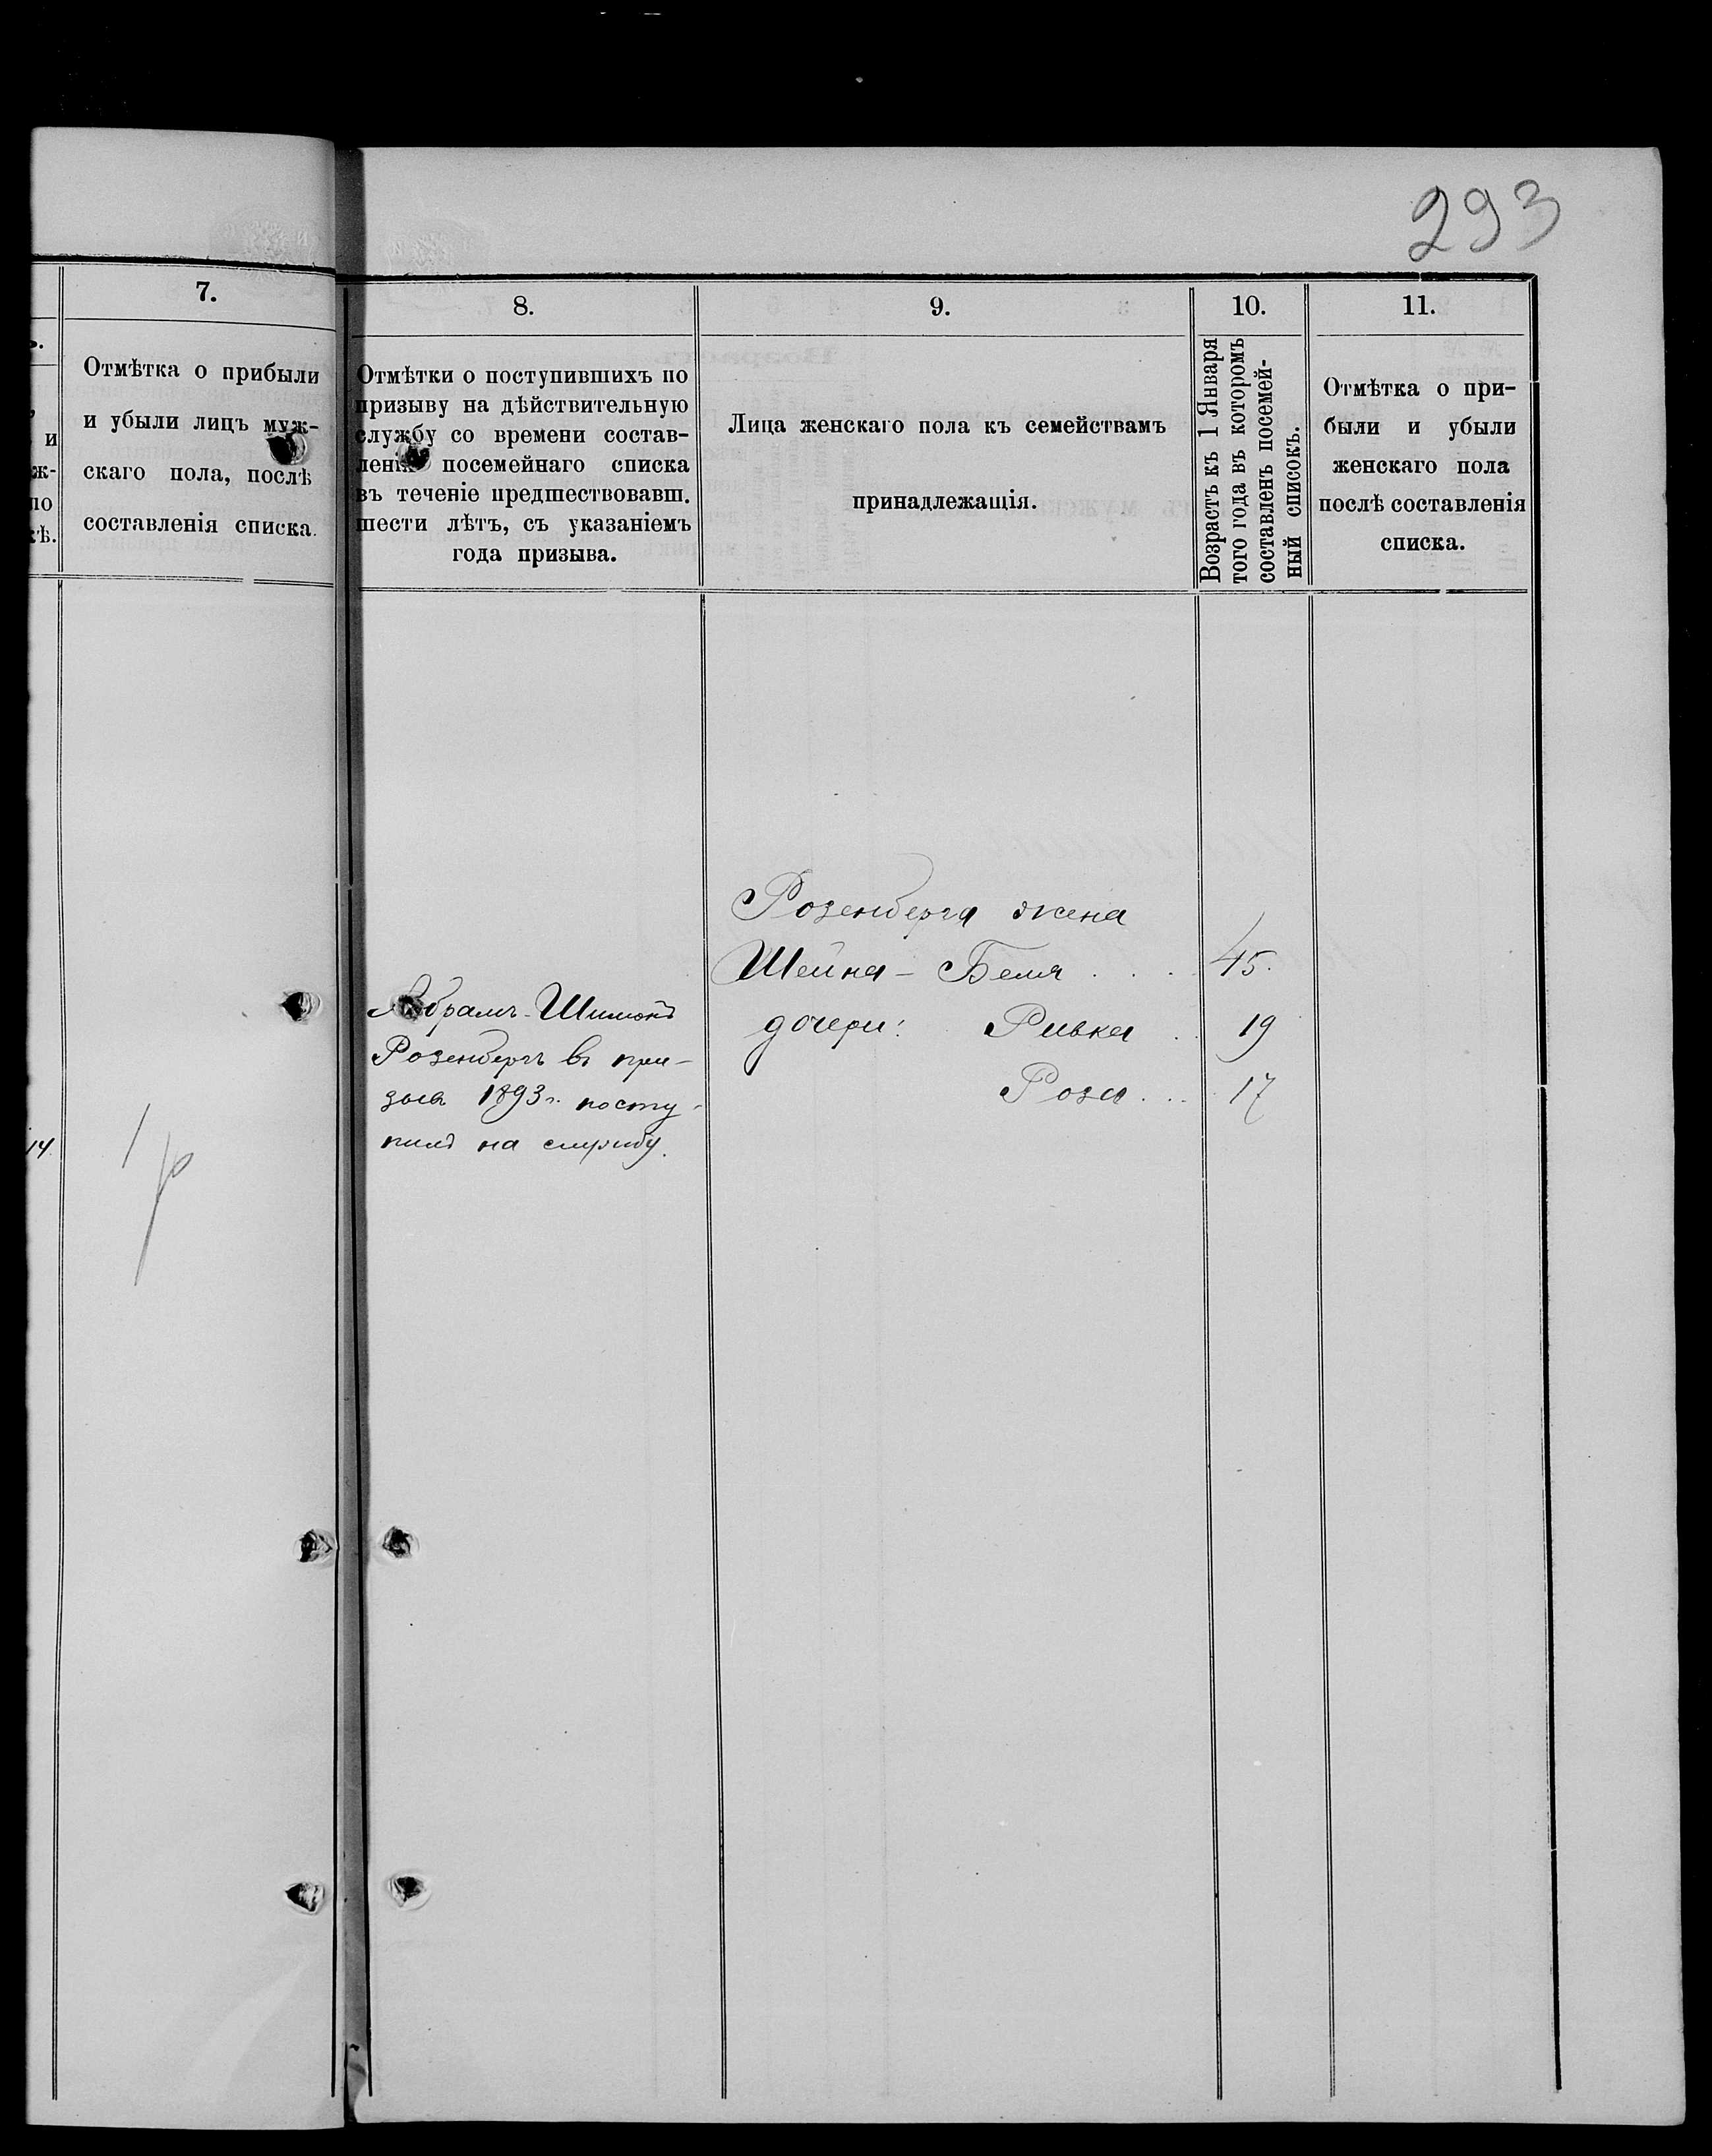 293
7.
Отмѣтка о прибыли
и убыли лицъ муж-
скаго пола, послѣ
составленія списка.
и
ж-
по
14.
8.
Отмѣтки о поступившихъ по
призыву на дѣйствительную
службу со времени состав-
ленія посемейнаго списка
въ теченіе предшествовавш.
шести лѣтъ, съ указаніемъ
года призыва.
Абрамъ-Шимонъ
Розенбергъ въ при-
зывъ 1893 г. посту-
пилъ на службу.
9.
Лица женскаго пола къ семействамъ
принадлежащія.
Розенберга жена
Шейна - Бейля . . .
дочери: Ривка . .
Роза . . .
10.
Возрастъ къ 1 Января
того года въ которомъ
составленъ посемей-
ный списокъ.
45.
19
17
11.
Отмѣтка о при-
были и убыли
женскаго пола
послѣ составленія
списка.